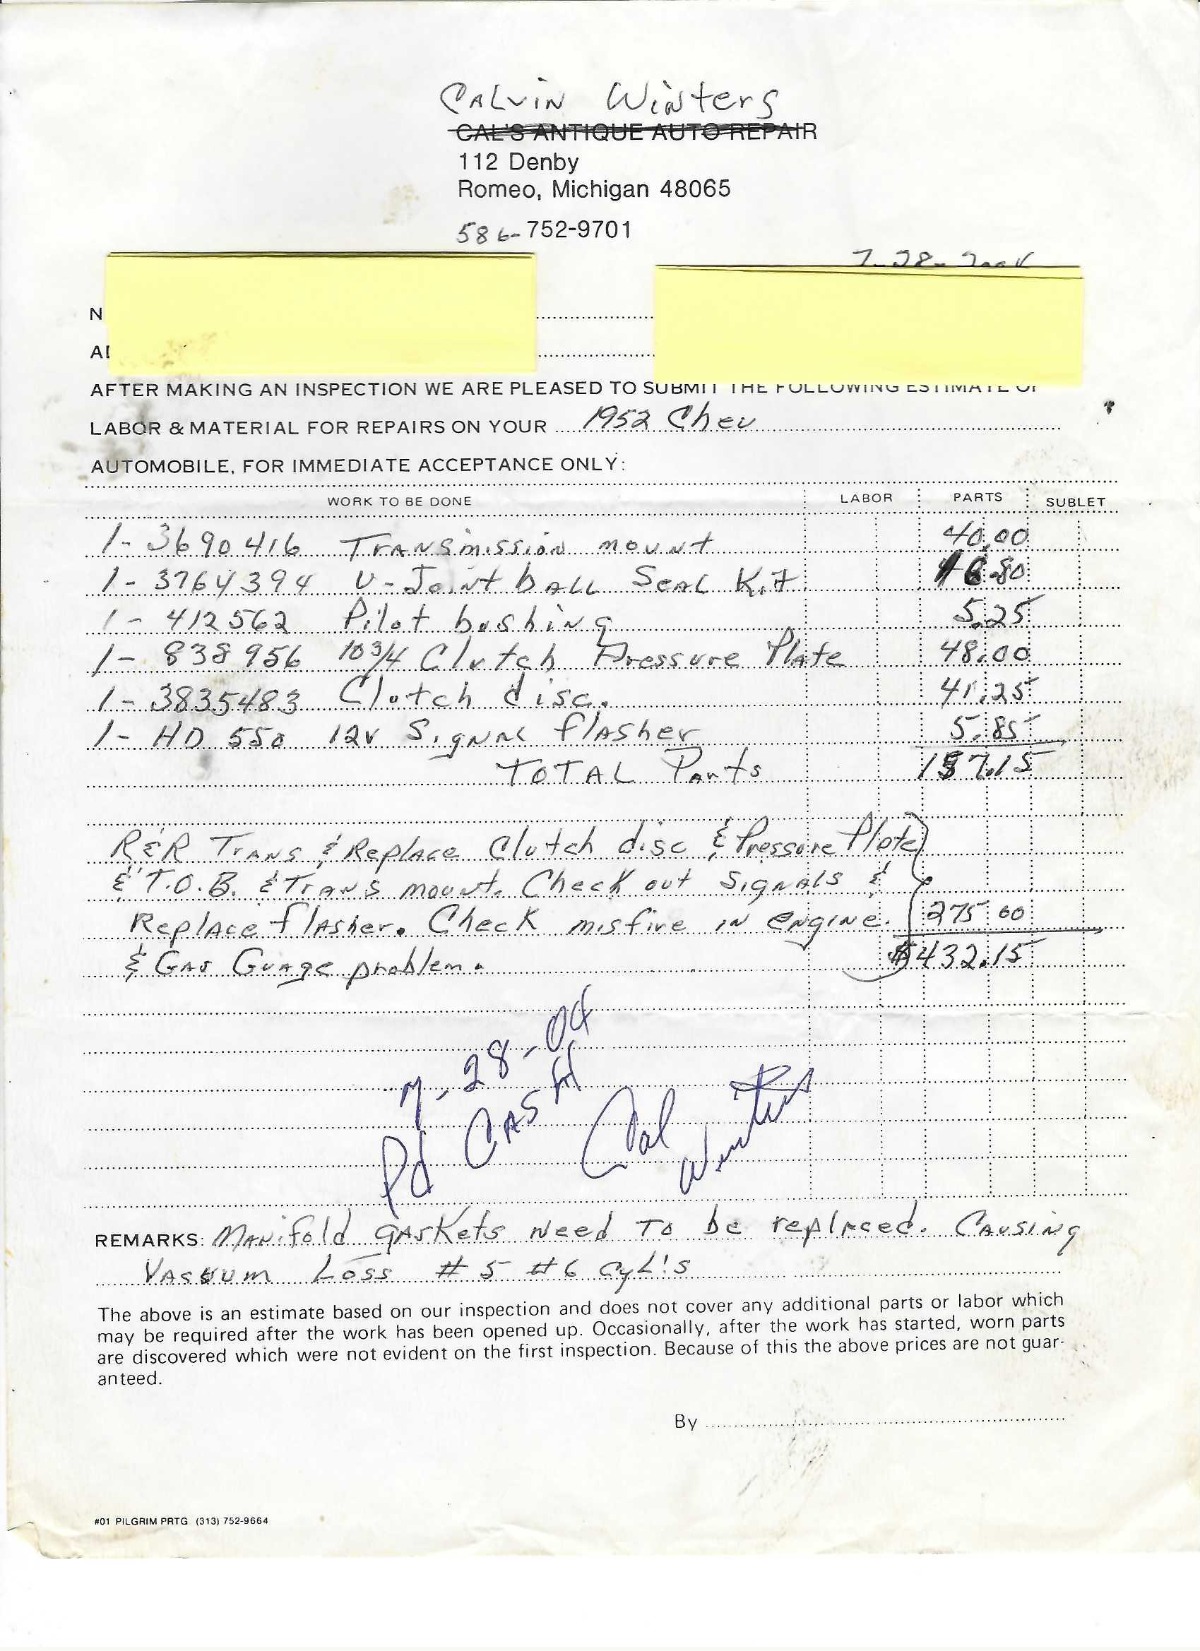 CALVIN WINTERS
CAL'S ANTIQUE AUTO REPAIR
112 Denby
Romeo, Michigan 48065
586-752-9701
7-28-2004
N
AD
AFTER MAKING AN INSPECTION WE ARE PLEASED TO SUBMIT THE FOLLOWING ESTIMATE OF
LABOR & MATERIAL FOR REPAIRS ON YOUR 1952 Chev
AUTOMOBILE, FOR IMMEDIATE ACCEPTANCE ONLY:
WORK TO BE DONE LABOR PARTS SUBLET
1- 3690416 Transmission mount 40.00
1- 3764394 U-Joint ball Seal Kit 16.80
1- 412562 Pilot bushing 5.25
1- 838956 10 3/4 Clutch Pressure Plate 48.00
1- 3835483 Clutch disc. 41.25
1- HD 550 12v Signal flasher 5.85
TOTAL Parts 157.15
R&R Trans & Replace Clutch disc & Pressure Plate
& T.O.B. & Trans mount. Check out Signals &
Replace flasher. Check misfire in engine. 275 00
& Gas Guage problem. $432.15
7-28-04
Pd CASH Cal Winters
REMARKS: Manifold gaskets need to be replaced. Causing
Vacuum Loss #5 #6 cyl's
The above is an estimate based on our inspection and does not cover any additional parts or labor which
may be required after the work has been opened up. Occasionally, after the work has started, worn parts
are discovered which were not evident on the first inspection. Because of this the above prices are not guar-
anteed.
By
#01 PILGRIM PRTG (313) 752-9664